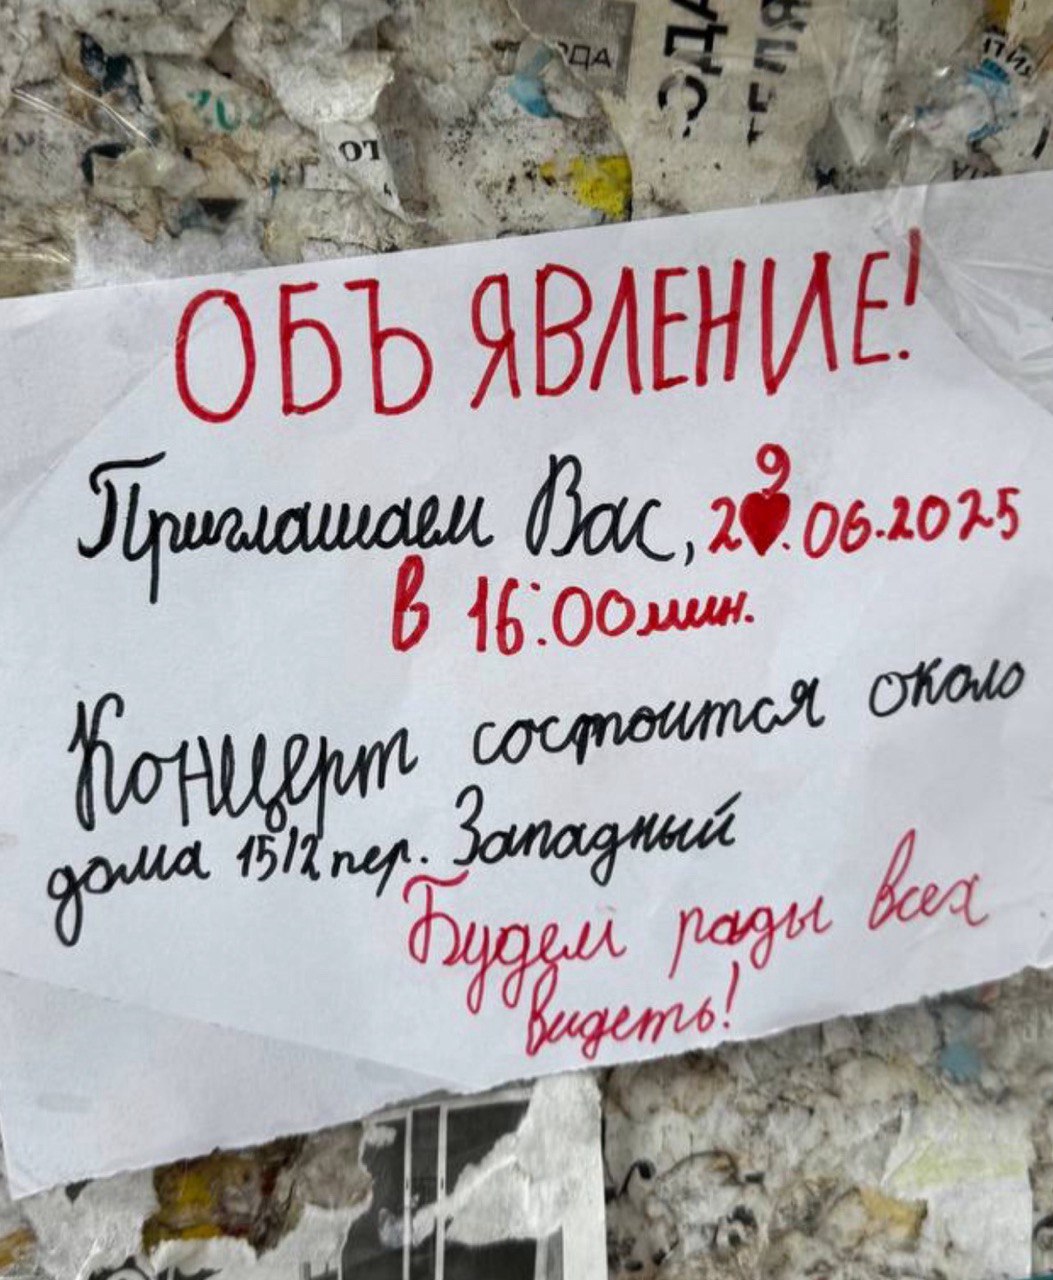 ОДА
ОДА
ЕЛЯ
ТИЯ
ОТ
ОБЪЯВЛЕНИЕ!
Приглашаем Вас, 29.06.2025
в 16:00 мин.
Концерт состоится около
дома 15/2 пер. Западный
Будем рады всех
видеть!